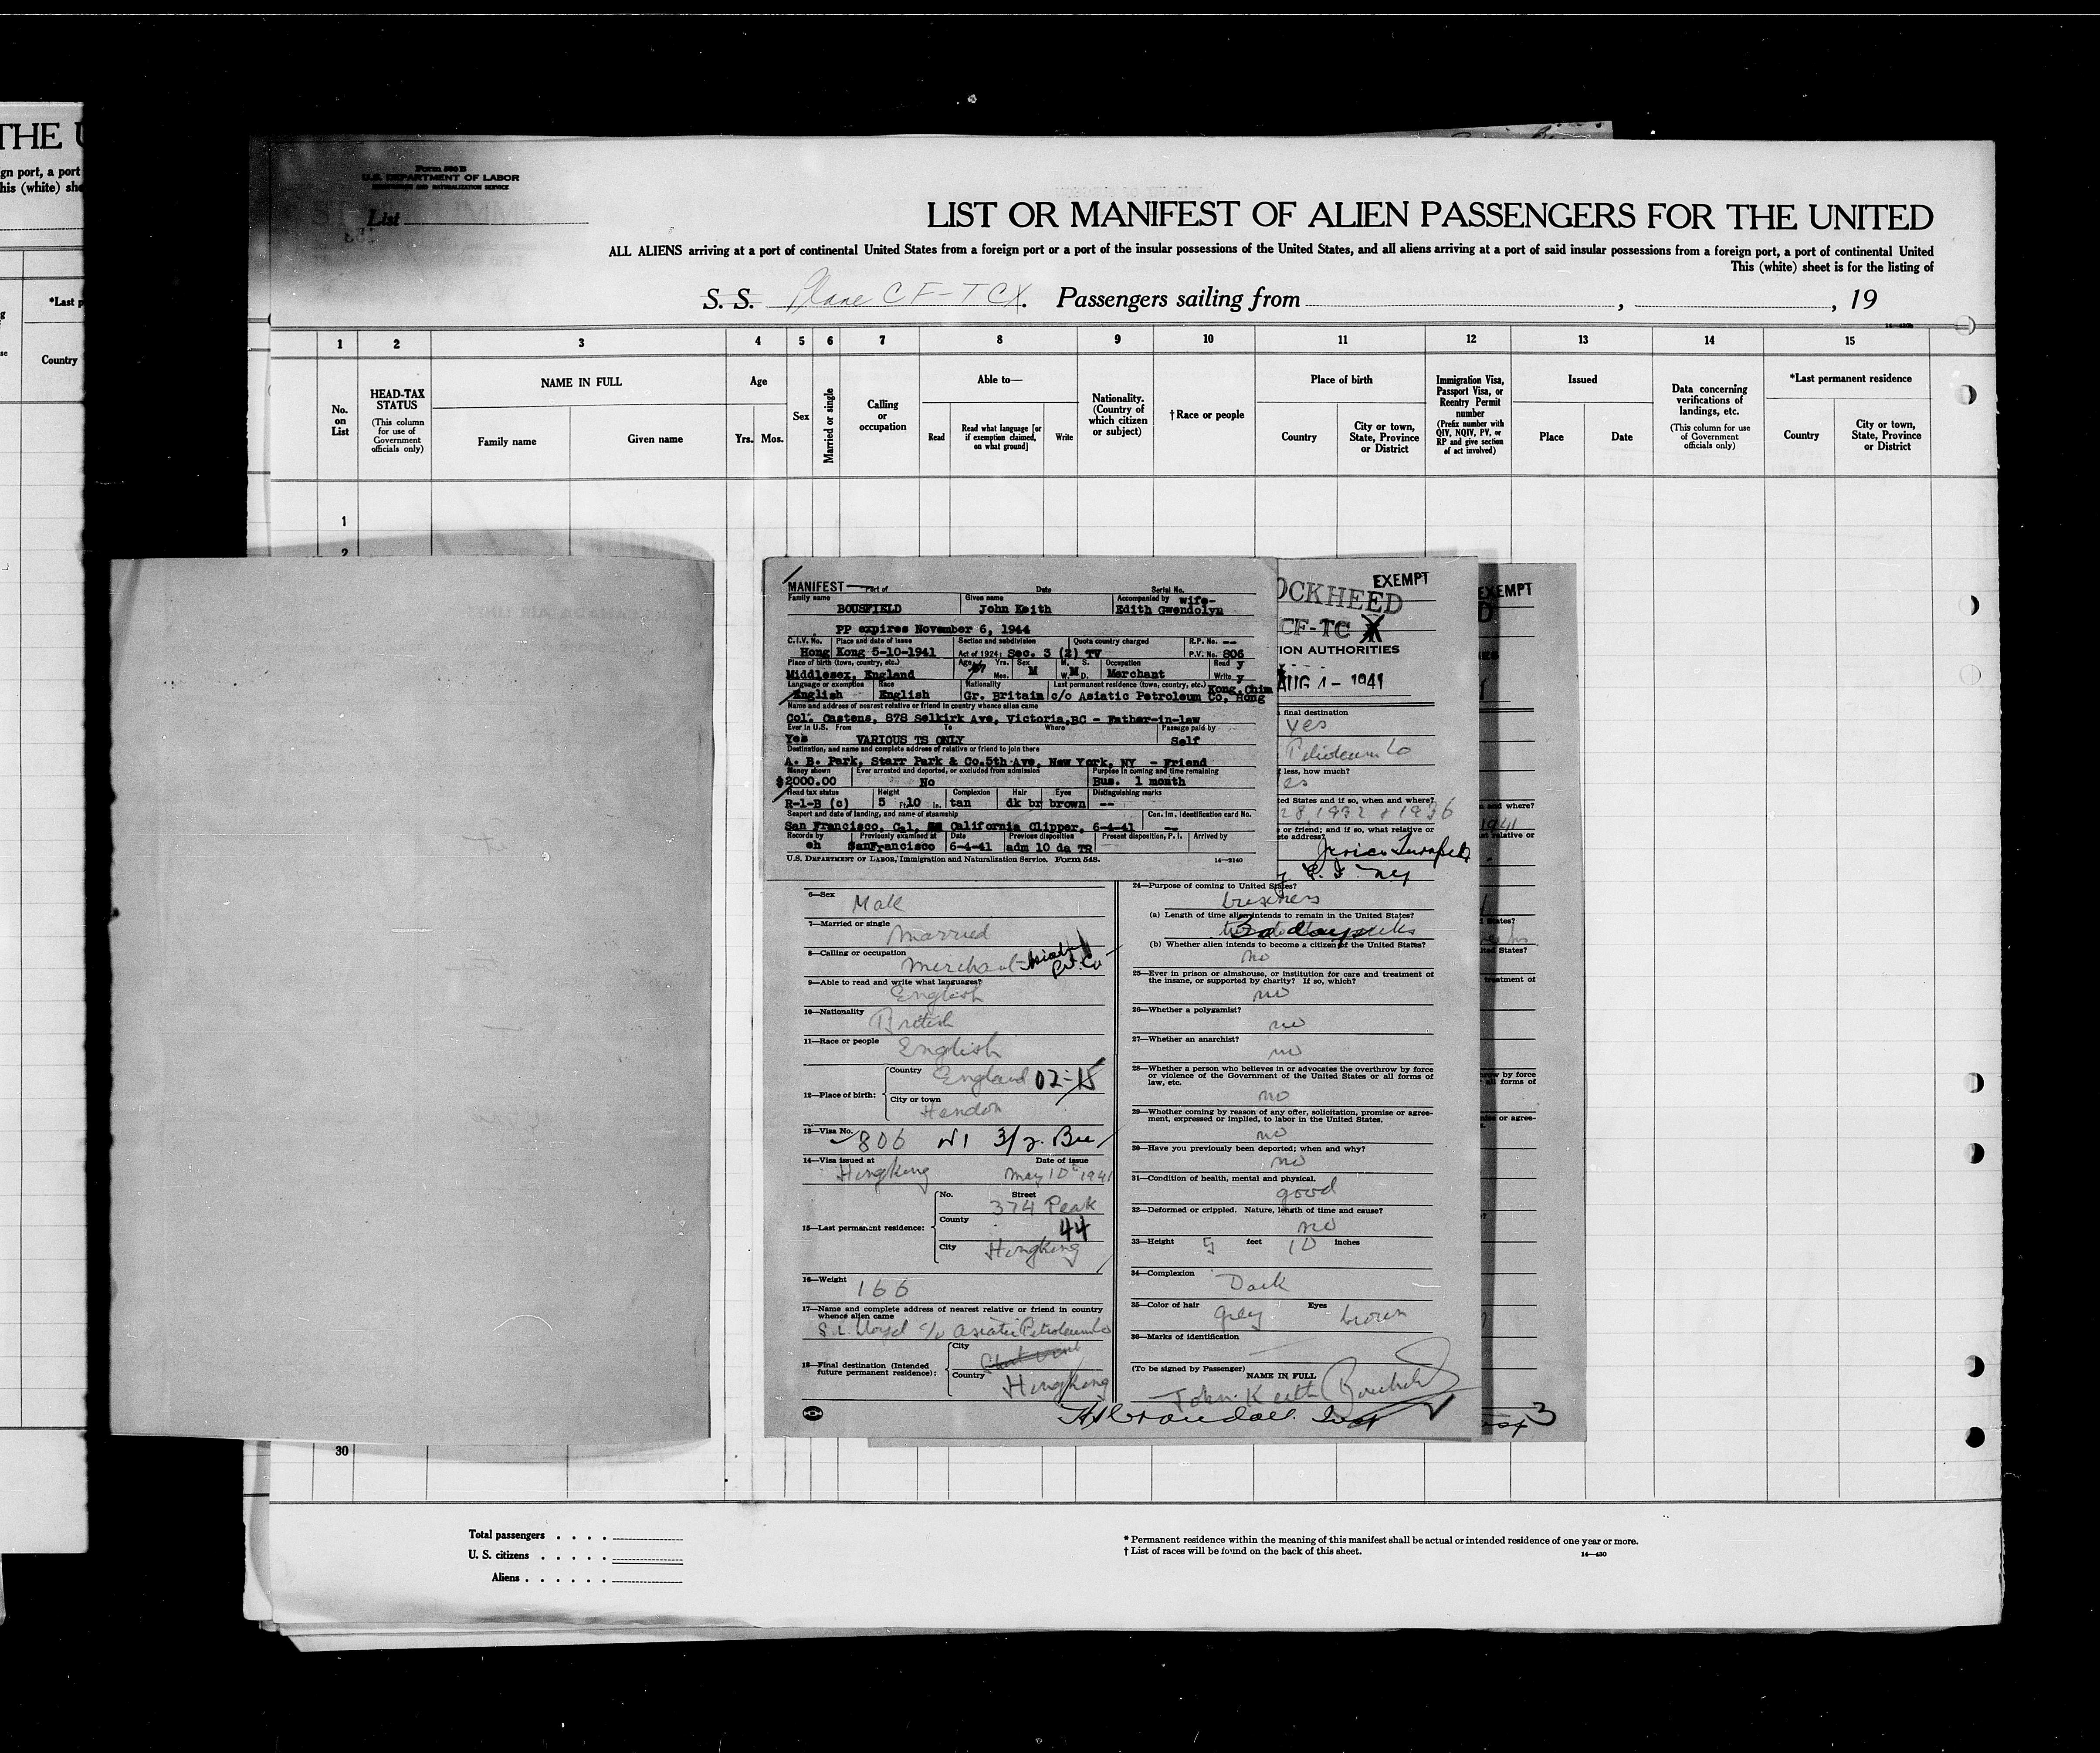 THE U
gn port, a port
his (white) she
*Last p
Country
Form 500 B
U.S. DEPARTMENT OF LABOR
IMMIGRATION AND NATURALIZATION SERVICE
List
LIST OR MANIFEST OF ALIEN PASSENGERS FOR THE UNITED
ALL ALIENS arriving at a port of continental United States from a foreign port or a port of the insular possessions of the United States, and all aliens arriving at a port of said insular possessions from a foreign port, a port of continental United
This (white) sheet is for the listing of
S. S. Plane CF-TCX. Passengers sailing from , , 19
1 2 3 4 5 6 7 8 9 10 11 12 13 14 15
No. on List
HEAD-TAX STATUS (This column for use of Government officials only)
NAME IN FULL
Family name Given name
Age
Yrs. Mos.
Sex
Married or single
Calling or occupation
Able to—
Read
Read what language [or if exemption claimed, on what ground]
Write
Nationality. (Country of which citizen or subject)
†Race or people
Place of birth
Country
City or town, State, Province or District
Immigration Visa, Passport Visa, or Reentry Permit number (Prefix number with QIV, NQIV, PV, or RP and give section of act involved)
Issued
Place Date
Data concerning verifications of landings, etc. (This column for use of Government officials only)
*Last permanent residence
Country
City or town, State, Province or District
1
2
MANIFEST Port of Date Serial No.
Family name Given name Accompanied by wife-
BOUSFIELD John Keith Edith Gwendolyn
PP expires November 6, 1944
C.I.V. No. Place and date of issue Section and subdivision Quota country charged R.P. No. --
Hong Kong 5-10-1941 Act of 1924: Sec. 3 (2) TV P.V. No. 806
Place of birth (town, country, etc.) Age Yrs. Sex M. S. Occupation Read y
Middlesex, England Mos. M W. M D. Merchant Write y
Language or exemption Race Nationality Last permanent residence (town, country, etc.) Kong, China
English English Gr. Britain c/o Asiatic Petroleum Co, Hong
Name and address of nearest relative or friend in country whence alien came
Col. Castens, 878 Selkirk Ave, Victoria,BC - Father-in-law
Ever in U.S. From To Where Passage paid by
Yes VARIOUS TS ONLY Self
Destination, and name and complete address of relative or friend to join there
A. B. Park, Starr Park & Co.5th Ave, New York, NY - Friend
Money shown Ever arrested and deported, or excluded from admission Purpose in coming and time remaining
$2000.00 No Bus. 1 month
Head tax status Height Complexion Hair Eyes Distinguishing marks
R-1-B (c) 5 Ft. 10 in. tan dk br brown --
Seaport and date of landing, and name of steamship Con. Im. Identification card No.
San Francisco, Cal, California Clipper, 6-4-41 --
Records by Previously examined at Date Previous disposition Present disposition, P. I. Arrived by
eh SanFrancisco 6-4-41 adm 10 da TR
U.S. DEPARTMENT OF LABOR, Immigration and Naturalization Service. Form 548. 14—2140
EXEMPT
OCKHEED
CF-TC X
ION AUTHORITIES
AUG 1- 1941
final destination
yes
Petroleum Co
f less, how much?
es
ted States and if so, when and where?
28, 1932 + 1936
e or friend; and if so, what relative or
ete address?
EXEMPT
D
and where?
1941
relative or
6—Sex
Male
7—Married or single
Married
8—Calling or occupation
Merchant Asiatic Pet. Co
9—Able to read and write what languages?
English
10—Nationality
British
11—Race or people
English
12—Place of birth:
Country England 02-15
City or town
Hendon
13—Visa No. 806 3/2. Bu
14—Visa issued at Date of issue
Hongkong May 10th 1941
15—Last permanent residence:
No. Street
374 Peak
County
44
City Hongkong
16—Weight 166
17—Name and complete address of nearest relative or friend in country whence alien came
S. L. Lloyd c/o Asiatic Petroleum Co
18—Final destination (Intended future permanent residence):
City
Country Hongkong
24—Purpose of coming to United States?
business
(a) Length of time alien intends to remain in the United States?
30 days
(b) Whether alien intends to become a citizen of the United States?
no
25—Ever in prison or almshouse, or institution for care and treatment of the insane, or supported by charity? If so, which?
no
26—Whether a polygamist?
no
27—Whether an anarchist?
no
28—Whether a person who believes in or advocates the overthrow by force or violence of the Government of the United States or all forms of law, etc.
no
29—Whether coming by reason of any offer, solicitation, promise or agreement, expressed or implied, to labor in the United States.
no
30—Have you previously been deported; when and why?
no
31—Condition of health, mental and physical.
good
32—Deformed or crippled. Nature, length of time and cause?
no
33—Height 5 feet 10 inches
34—Complexion
Dark
35—Color of hair grey Eyes brown
36—Marks of identification
(To be signed by Passenger)
NAME IN FULL
John Keith Bousfield
States?
ited States?
eatment of
row by force
all forms of
ise or agree-
3
30
Total passengers . . . .
U. S. citizens . . . . .
Aliens . . . . . .
* Permanent residence within the meaning of this manifest shall be actual or intended residence of one year or more.
† List of races will be found on the back of this sheet. 14—430